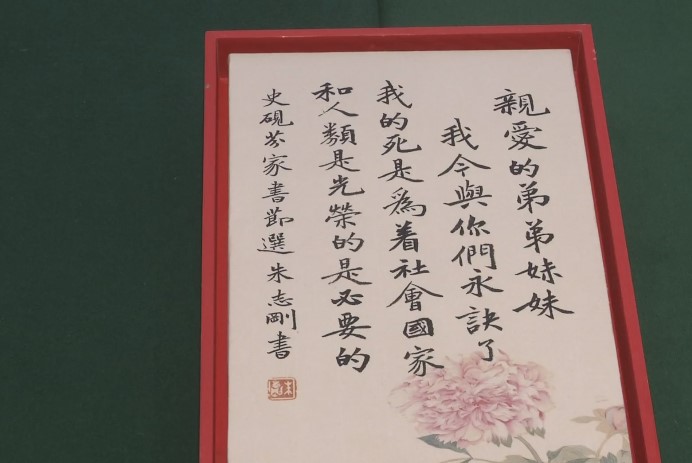 親愛的弟弟妹妹
我今與你們永訣了
我的死是為着社會國家
和人類是光榮的是必要的
史硯芬家書節選朱志剛書